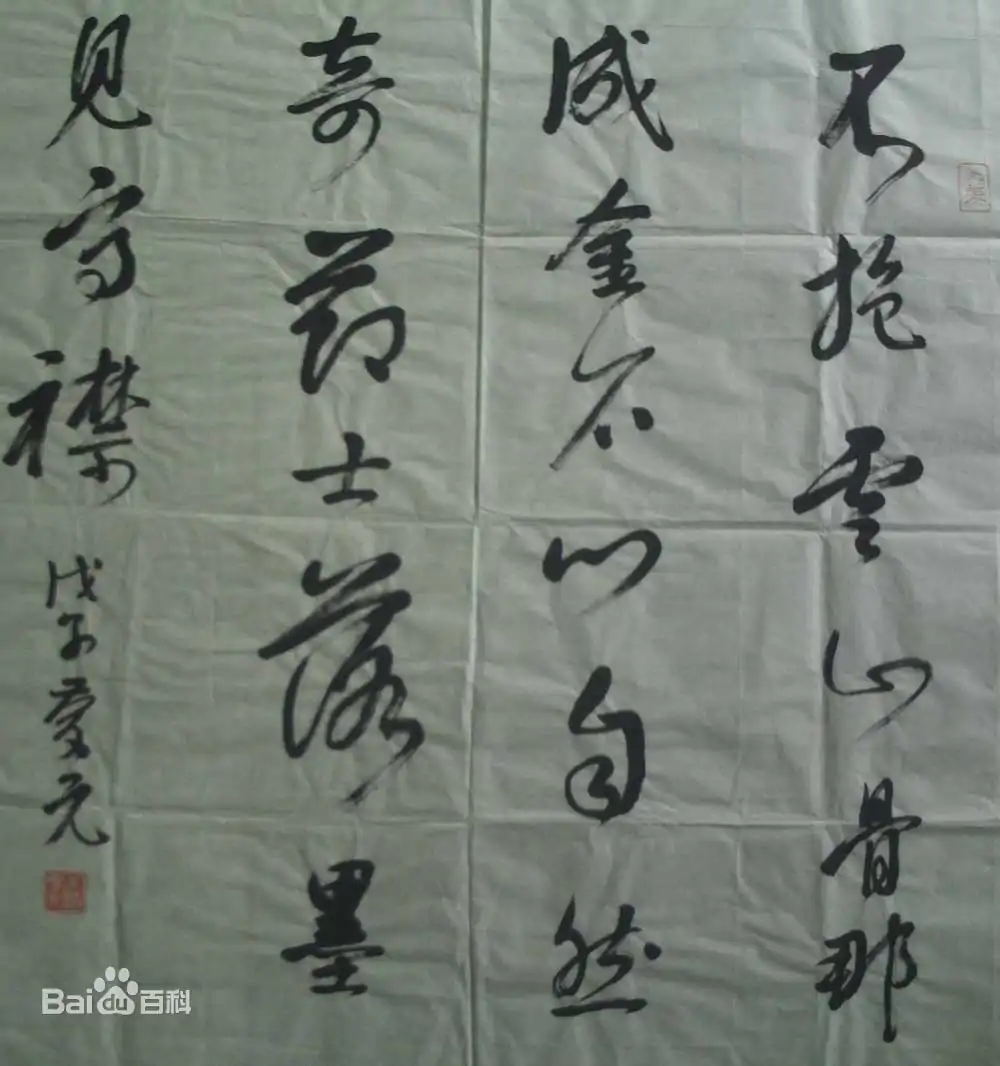 不抱云山骨那
成金石心自然
奇节士落墨
见高襟
戊子爱元
Bai百科